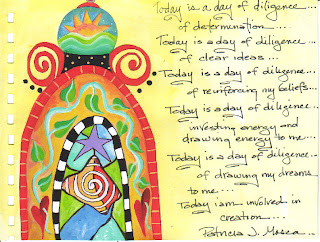 Today is a day of diligence...
of determination...
Today is a day of diligence...
of clear ideas...
Today is a day of diligence...
of reinforcing my beliefs...
Today is a day of diligence...
investing energy and
drawing energy to me...
Today is a day of diligence...
of drawing my dreams
to me...
Today I am involved in
creation...
Patricia J. Mosca